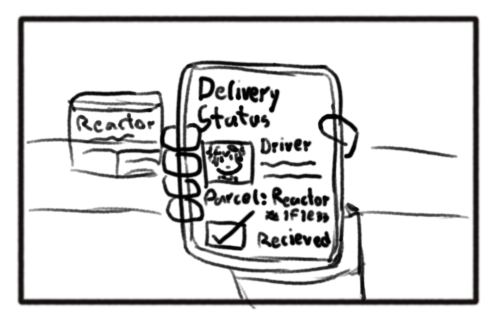 Reactor
Delivery
Status
Driver
Parcel: Reactor
Recieved